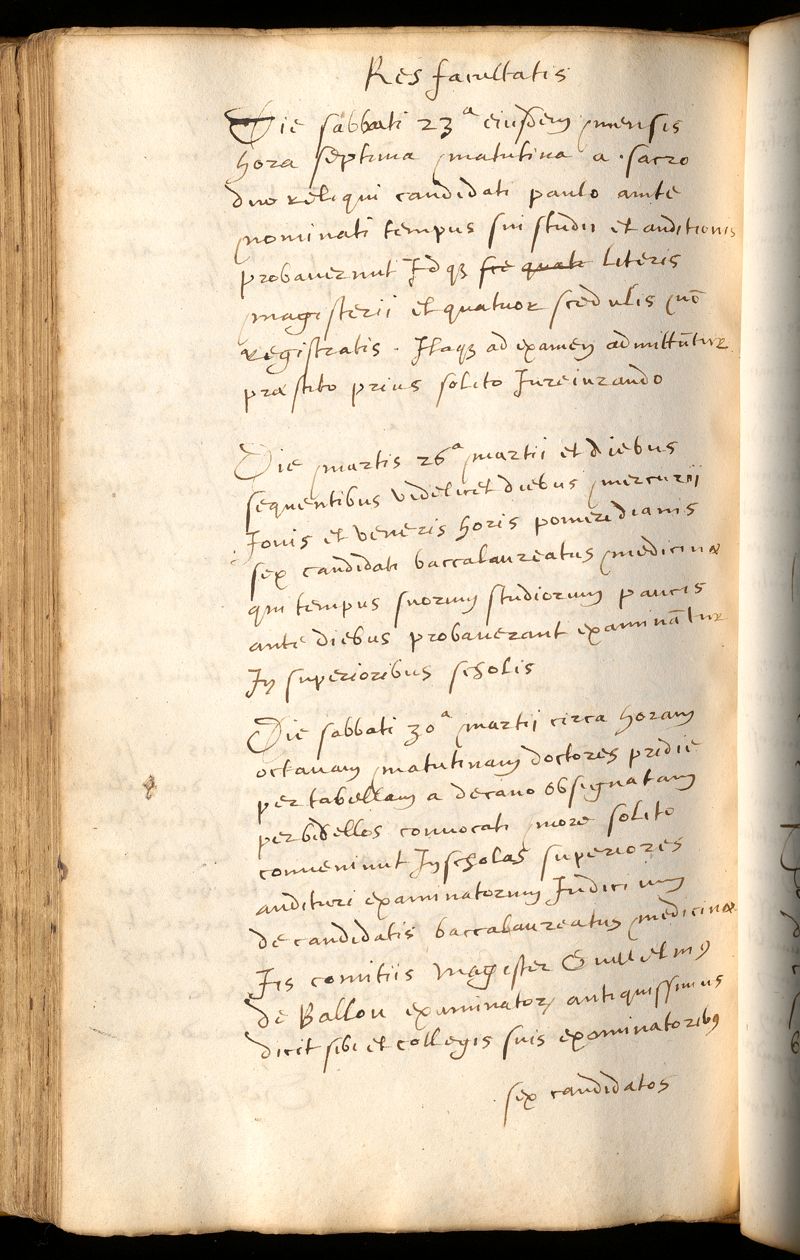 Res facultatis
Die sabbati 23ª eiusdem mensis
hora septima matutina a sacro
duo reliqui candidati paulo ante
nominati tempus sui studii et auditionis
probaverunt Idq3 literis
magisterii et quatuor scedulis nō
registratis. Itaq3 ad examen admittūtur
præstito prius solito Iureiurando
Die martis 26ª martii et diebus
sequentibus videlicet diebus mercurii
Iovis et veneris horis pomeridianis
sex candidati baccalaureatus medicinæ
qui tempus suorum studiorum paucis
ante diebus probaverant examinātur
In superioribus scholis
Die sabbati 30ª martii circa horam
octavam matutinam doctores pridie
per tabellam a decano obsignatam
per bidellos convocati more solito
conveniunt In scholas superiores
audituri examinatorum Iudicium
de candidatis baccalaureatus medicinæ
Iis comitiis magister Guillelmus
de Ballou examinator antiquissimus
dicit sibi et collegis suis examinatoribus
sex candidatos